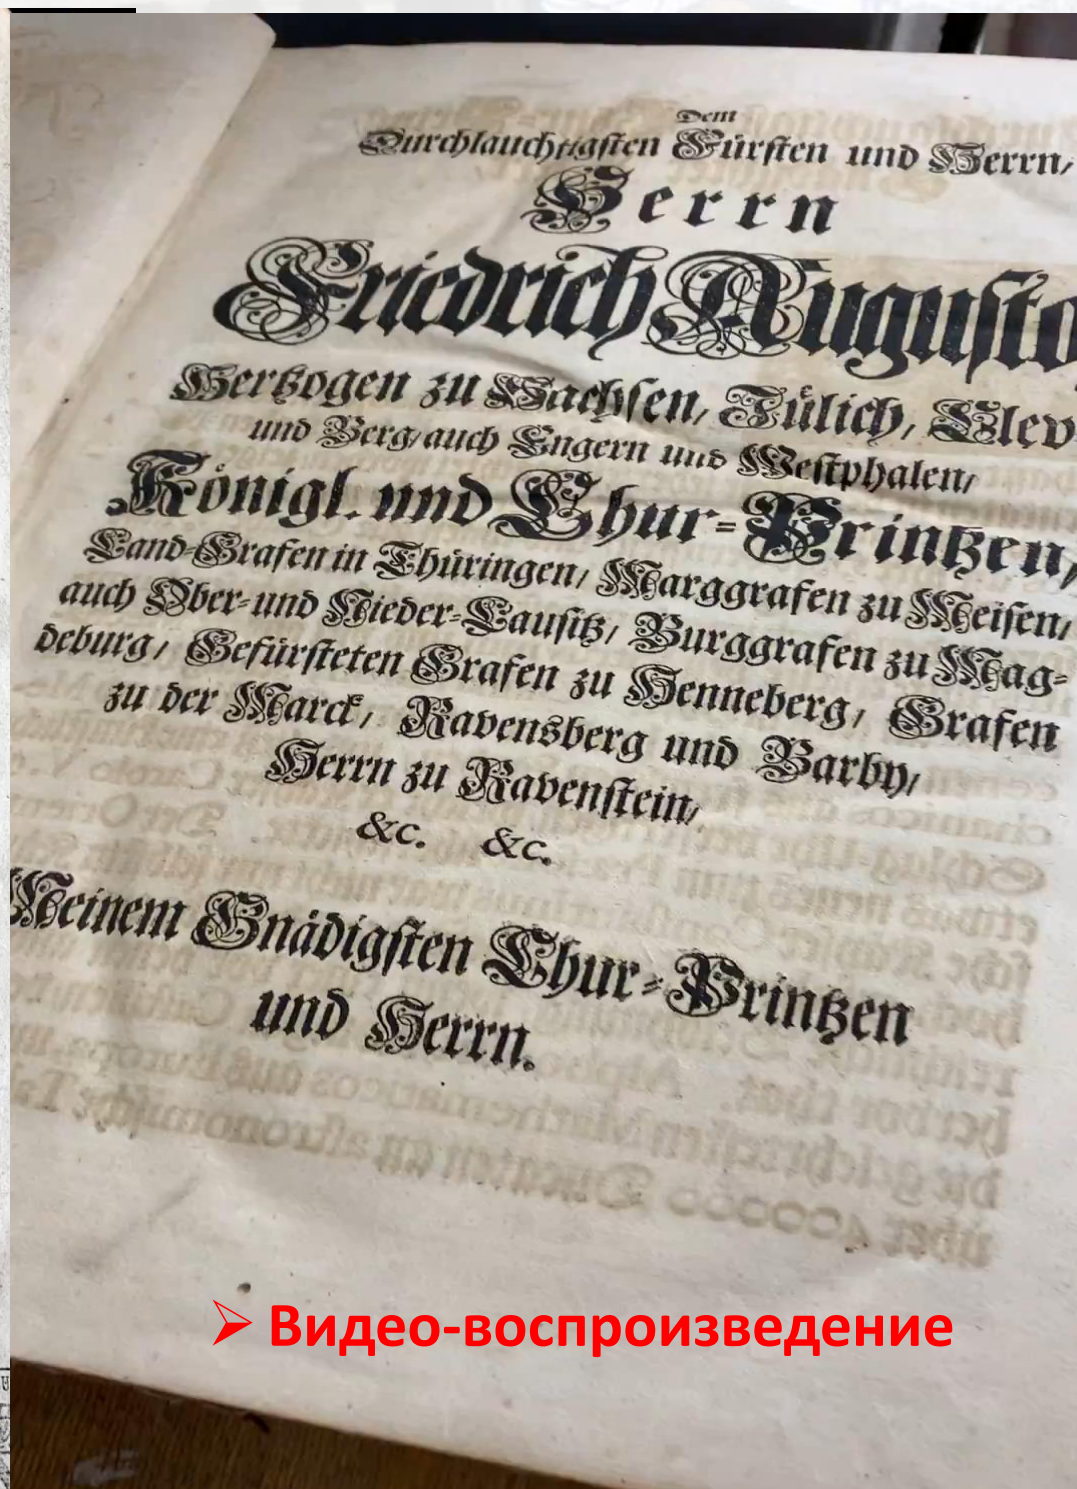 Dem
Durchlauchtigsten Fürsten und Herrn,
Herrn
Friedrich Augusto,
Hertzogen zu Sachsen, Jülich, Clev
und Berg, auch Engern und Westphalen,
Königl. und Chur-Printzen,
Land-Grafen in Thüringen, Marggrafen zu Meisen,
auch Ober- und Nieder-Lausitz, Burggrafen zu Mag-
deburg, Gefürsteten Grafen zu Henneberg, Grafen
zu der Marck, Ravensberg und Barby,
Herrn zu Ravenstein,
&c. &c.
Meinem Gnädigsten Chur-Printzen
und Herrn.
Видео-воспроизведение